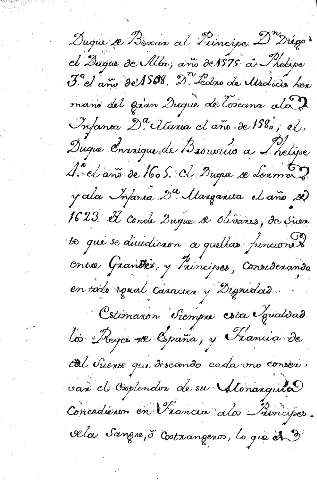 Duque de Bexar al Principe Dn Diego
el Duque de Alba, año de 1575 â Phelipe
3.º el año de 1588. Dn Pedro de Medicis her
mano del gran Duque de Toscana ala
Infanta Dª Maria el año de 1580; el
Duque Enrrique de Brswicio a Phelipe
4.º el año de 1605. El Duque de Lerma
y ala Infanta Dª Margarita el año de
1623 El Conde Duque de Olivares, de Suer
te que se dividieron aquellas funcione
entre Grandes, y Principes, considerando
en todo igual Caracter y Dignidad.
Estimaron Siempre esta Igualdad
los Reyes de España, y Francia de
tal Suerte que deseando cada uno conser
var el esplendor de su Monarquia
Concedieron en Francia alos Principes
dela Sangre, ô Estrangeros, lo que